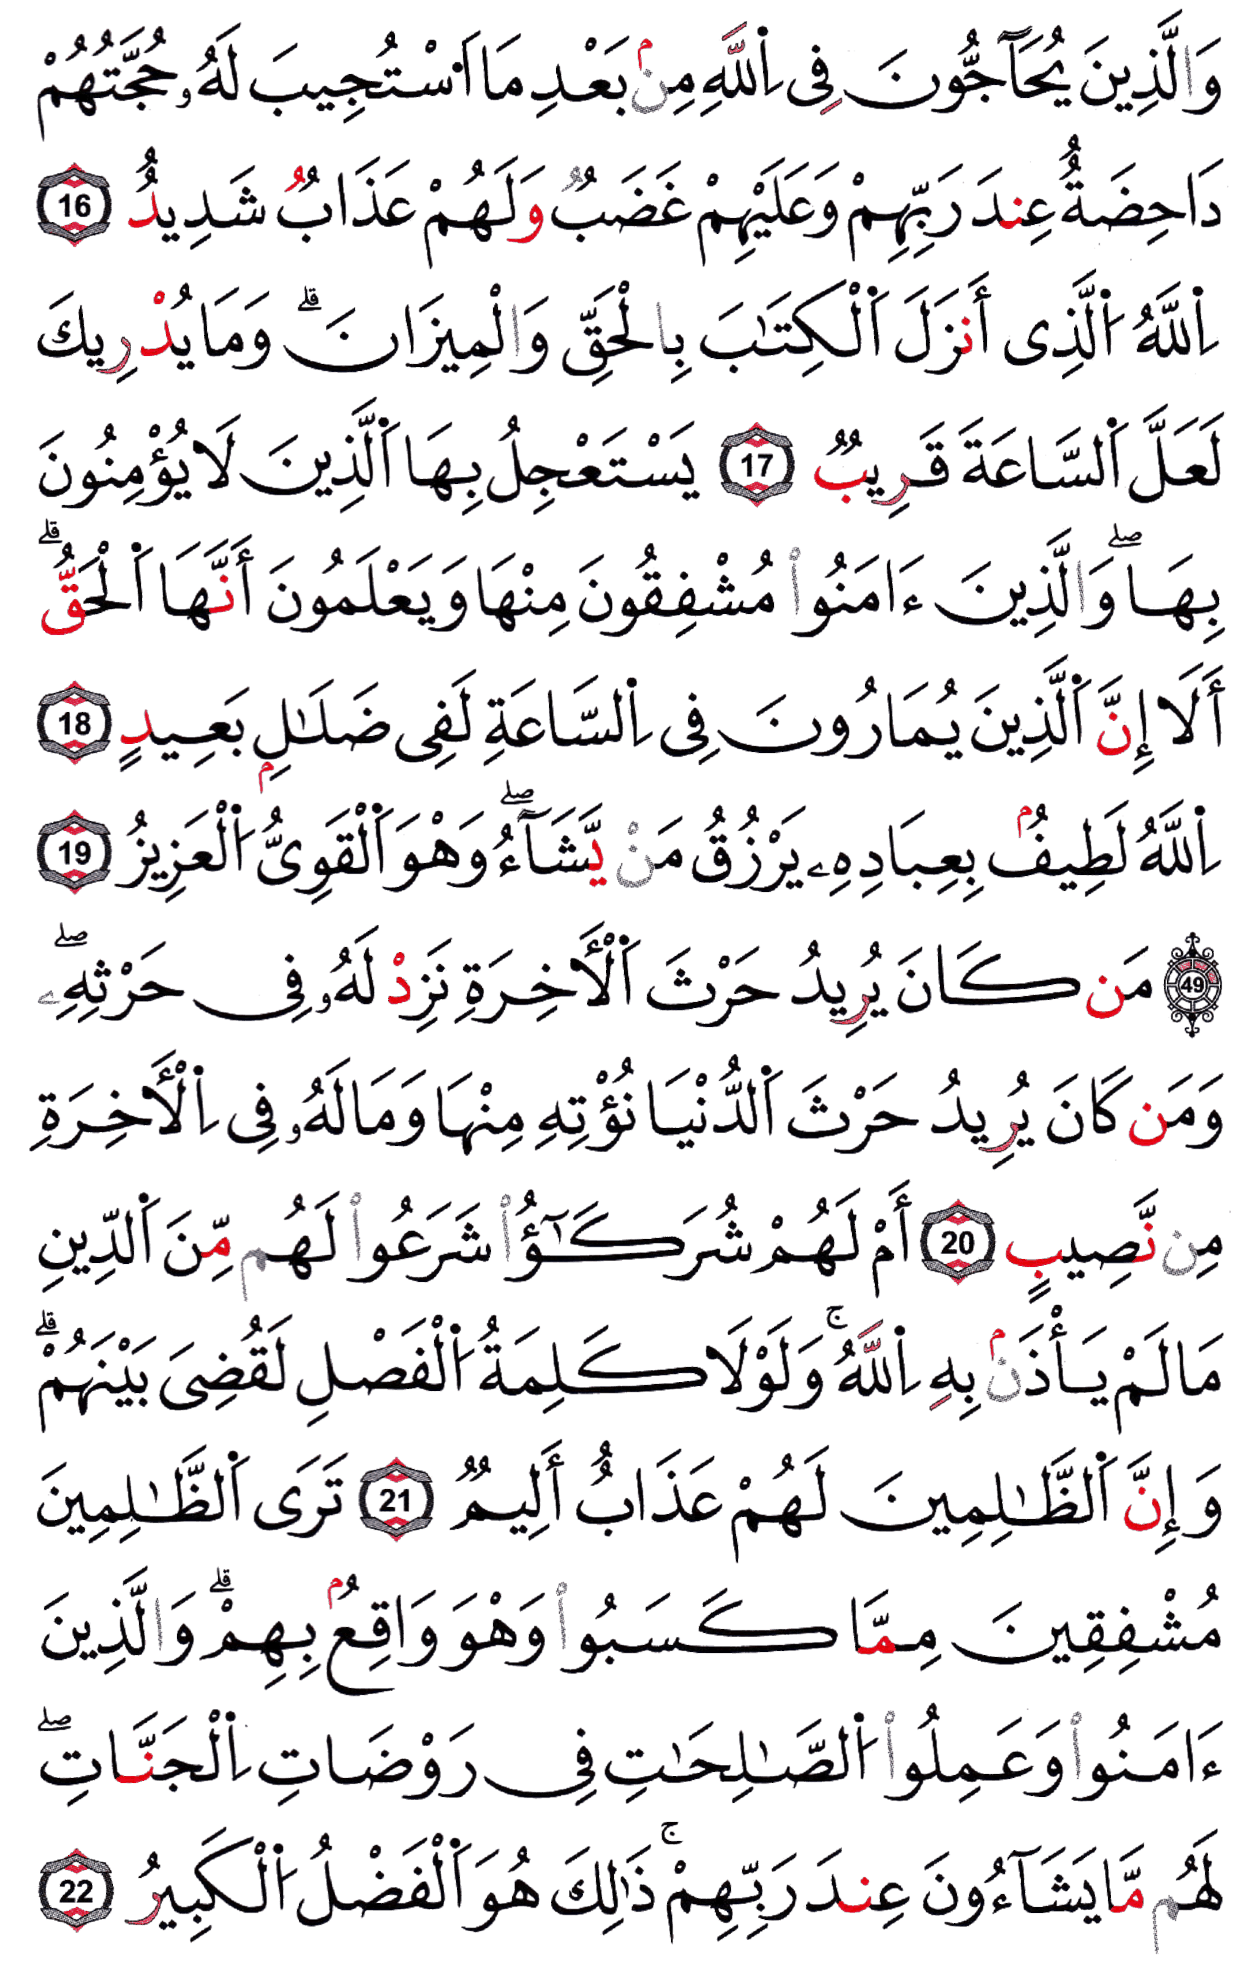 وَالَّذِينَ يُحَآجُّونَ فِى اِ۬للَّهِ مِنۢ بَعْدِ مَا اَ۟سْتُجِيبَ لَهُۥ حُجَّتُهُمْ
دَاحِضَةٌ عِندَ رَبِّهِمْ وَعَلَيْهِمْ غَضَبٌ وَلَهُمْ عَذَابٌ شَدِيدٌ 16
اِ۬للَّهُ اُ۬لَّذِى أَنزَلَ اَ۬لْكِتَٰبَ بِالْحَقِّ وَالْمِيزَانَ ۗ وَمَا يُدْرِيكَ
لَعَلَّ اَ۬لسَّاعَةَ قَرِيبٌ 17 يَسْتَعْجِلُ بِهَا اَ۬لَّذِينَ لَا يُؤْمِنُونَ
بِهَا ۖ وَالَّذِينَ ءَامَنُواْ مُشْفِقُونَ مِنْهَا وَيَعْلَمُونَ أَنَّهَا اَ۬لْحَقُّ ۗ
أَلَا إِنَّ اَ۬لَّذِينَ يُمَارُونَ فِى اِ۬لسَّاعَةِ لَفِى ضَلَٰلِۢ بَعِيدٍ 18
اِ۬للَّهُ لَطِيفُۢ بِعِبَادِهِۦ يَرْزُقُ مَنْ يَّشَآءُ ۖ وَهْوَ اَ۬لْقَوِىُّ اُ۬لْعَزِيزُ 19
49 مَن كَانَ يُرِيدُ حَرْثَ اَ۬لْأَخِرَةِ نَزِدْ لَهُۥ فِى حَرْثِهِۦ ۖ
وَمَن كَانَ يُرِيدُ حَرْثَ اَ۬لدُّنْيَا نُؤْتِهِ مِنْهَا وَمَا لَهُۥ فِى اِ۬لْأَخِرَةِ
مِن نَّصِيبٍ 20 أَمْ لَهُمْ شُرَكَٰٓؤُاْ شَرَعُواْ لَهُم مِّنَ اَ۬لدِّينِ
مَا لَمْ يَأْذَنۢ بِهِ اِ۬للَّهُ ۚ وَلَوْلَا كَلِمَةُ اُ۬لْفَصْلِ لَقُضِىَ بَيْنَهُمْ ۗ
وَإِنَّ اَ۬لظَّٰلِمِينَ لَهُمْ عَذَابٌ أَلِيمٌ 21 تَرَى اَ۬لظَّٰلِمِينَ
مُشْفِقِينَ مِمَّا كَسَبُواْ وَهْوَ وَاقِعُۢ بِهِمْ ۗ وَالَّذِينَ
ءَامَنُواْ وَعَمِلُواْ اُ۬لصَّٰلِحَٰتِ فِى رَوْضَاتِ اِ۬لْجَنَّاتِ ۖ
لَهُم مَّا يَشَآءُونَ عِندَ رَبِّهِمْ ۚ ذَٰلِكَ هُوَ اَ۬لْفَضْلُ اُ۬لْكَبِيرُ 22